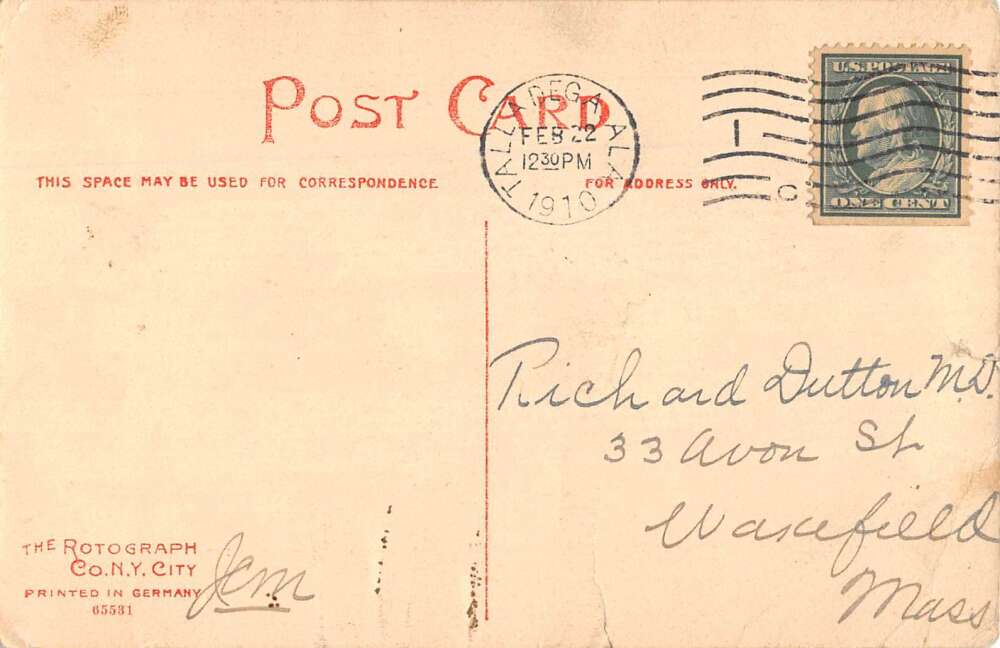 POST CARD
THIS SPACE MAY BE USED FOR CORRESPONDENCE
FOR ADDRESS ONLY.
TALLADEGA ALA
FEB 22
12 30 PM
1910
1
C
U.S. POSTAGE
ONE CENT
Richard Dutton M.D.
33 Avon St
Wakefield
Mass
THE ROTOGRAPH
CO. N.Y. CITY
PRINTED IN GERMANY
65531
Jcm